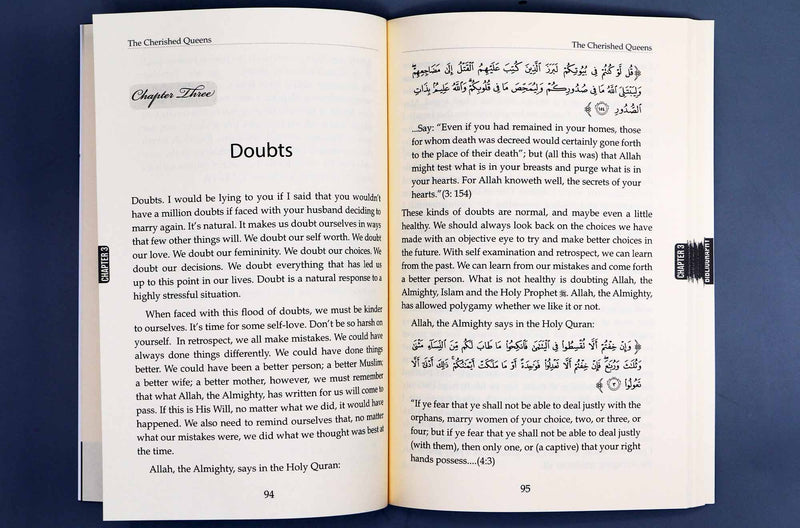 The Cherished Queens
Chapter Three
Doubts
Doubts. I would be lying to you if I said that you wouldn't
have a million doubts if faced with your husband deciding to
marry again. It's natural. It makes us doubt ourselves in ways
that few other things will. We doubt our self worth. We doubt
our love. We doubt our femininity. We doubt our choices. We
doubt our decisions. We doubt everything that has led us
up to this point in our lives. Doubt is a natural response to a
highly stressful situation.
When faced with this flood of doubts, we must be kinder
to ourselves. It's time for some self-love. Don't be so harsh on
yourself. In retrospect, we all make mistakes. We could have
always done things differently. We could have done things
better. We could have been a better person; a better Muslim;
a better wife; a better mother, however, we must remember
that what Allah, the Almighty, has written for us will come to
pass. If this is His Will, no matter what we did, it would have
happened. We also need to remind ourselves that, no matter
what our mistakes were, we did what we thought was best at
the time.
Allah, the Almighty, says in the Holy Quran:
94
CHAPTER 3
The Cherished Queens
﴿قُل لَّوْ كُنتُمْ فِى بُيُوتِكُمْ لَبَرَزَ ٱلَّذِينَ كُتِبَ عَلَيْهِمُ ٱلْقَتْلُ إِلَىٰ مَضَاجِعِهِمْ ۖ
وَلِيَبْتَلِىَ ٱللَّهُ مَا فِى صُدُورِكُمْ وَلِيُمَحِّصَ مَا فِى قُلُوبِكُمْ ۗ وَٱللَّهُ عَلِيمٌۢ بِذَاتِ
ٱلصُّدُورِ ١٥٤﴾
...Say: "Even if you had remained in your homes, those
for whom death was decreed would certainly gone forth
to the place of their death"; but (all this was) that Allah
might test what is in your breasts and purge what is in
your hearts. For Allah knoweth well, the secrets of your
hearts."(3: 154)
These kinds of doubts are normal, and maybe even a little
healthy. We should always look back on the choices we have
made with an objective eye to try and make better choices in
the future. With self examination and retrospect, we can learn
from the past. We can learn from our mistakes and come forth
a better person. What is not healthy is doubting Allah, the
Almighty, Islam and the Holy Prophet ﷺ. Allah, the Almighty,
has allowed polygamy whether we like it or not.
Allah, the Almighty says in the Holy Quran:
﴿وَإِنْ خِفْتُمْ أَلَّا تُقْسِطُوا۟ فِى ٱلْيَتَـٰمَىٰ فَٱنكِحُوا۟ مَا طَابَ لَكُم مِّنَ ٱلنِّسَآءِ مَثْنَىٰ
وَثُلَـٰثَ وَرُبَـٰعَ ۖ فَإِنْ خِفْتُمْ أَلَّا تَعْدِلُوا۟ فَوَٰحِدَةً أَوْ مَا مَلَكَتْ أَيْمَـٰنُكُمْ ۚ ذَٰلِكَ أَدْنَىٰٓ أَلَّا
تَعُولُوا۟ ٣﴾
"If ye fear that ye shall not be able to deal justly with the
orphans, marry women of your choice, two, or three, or
four; but if ye fear that ye shall not be able to deal justly
(with them), then only one, or (a captive) that your right
hands possess....(4:3)
95
CHAPTER 3
BIBLIOGRAPHY